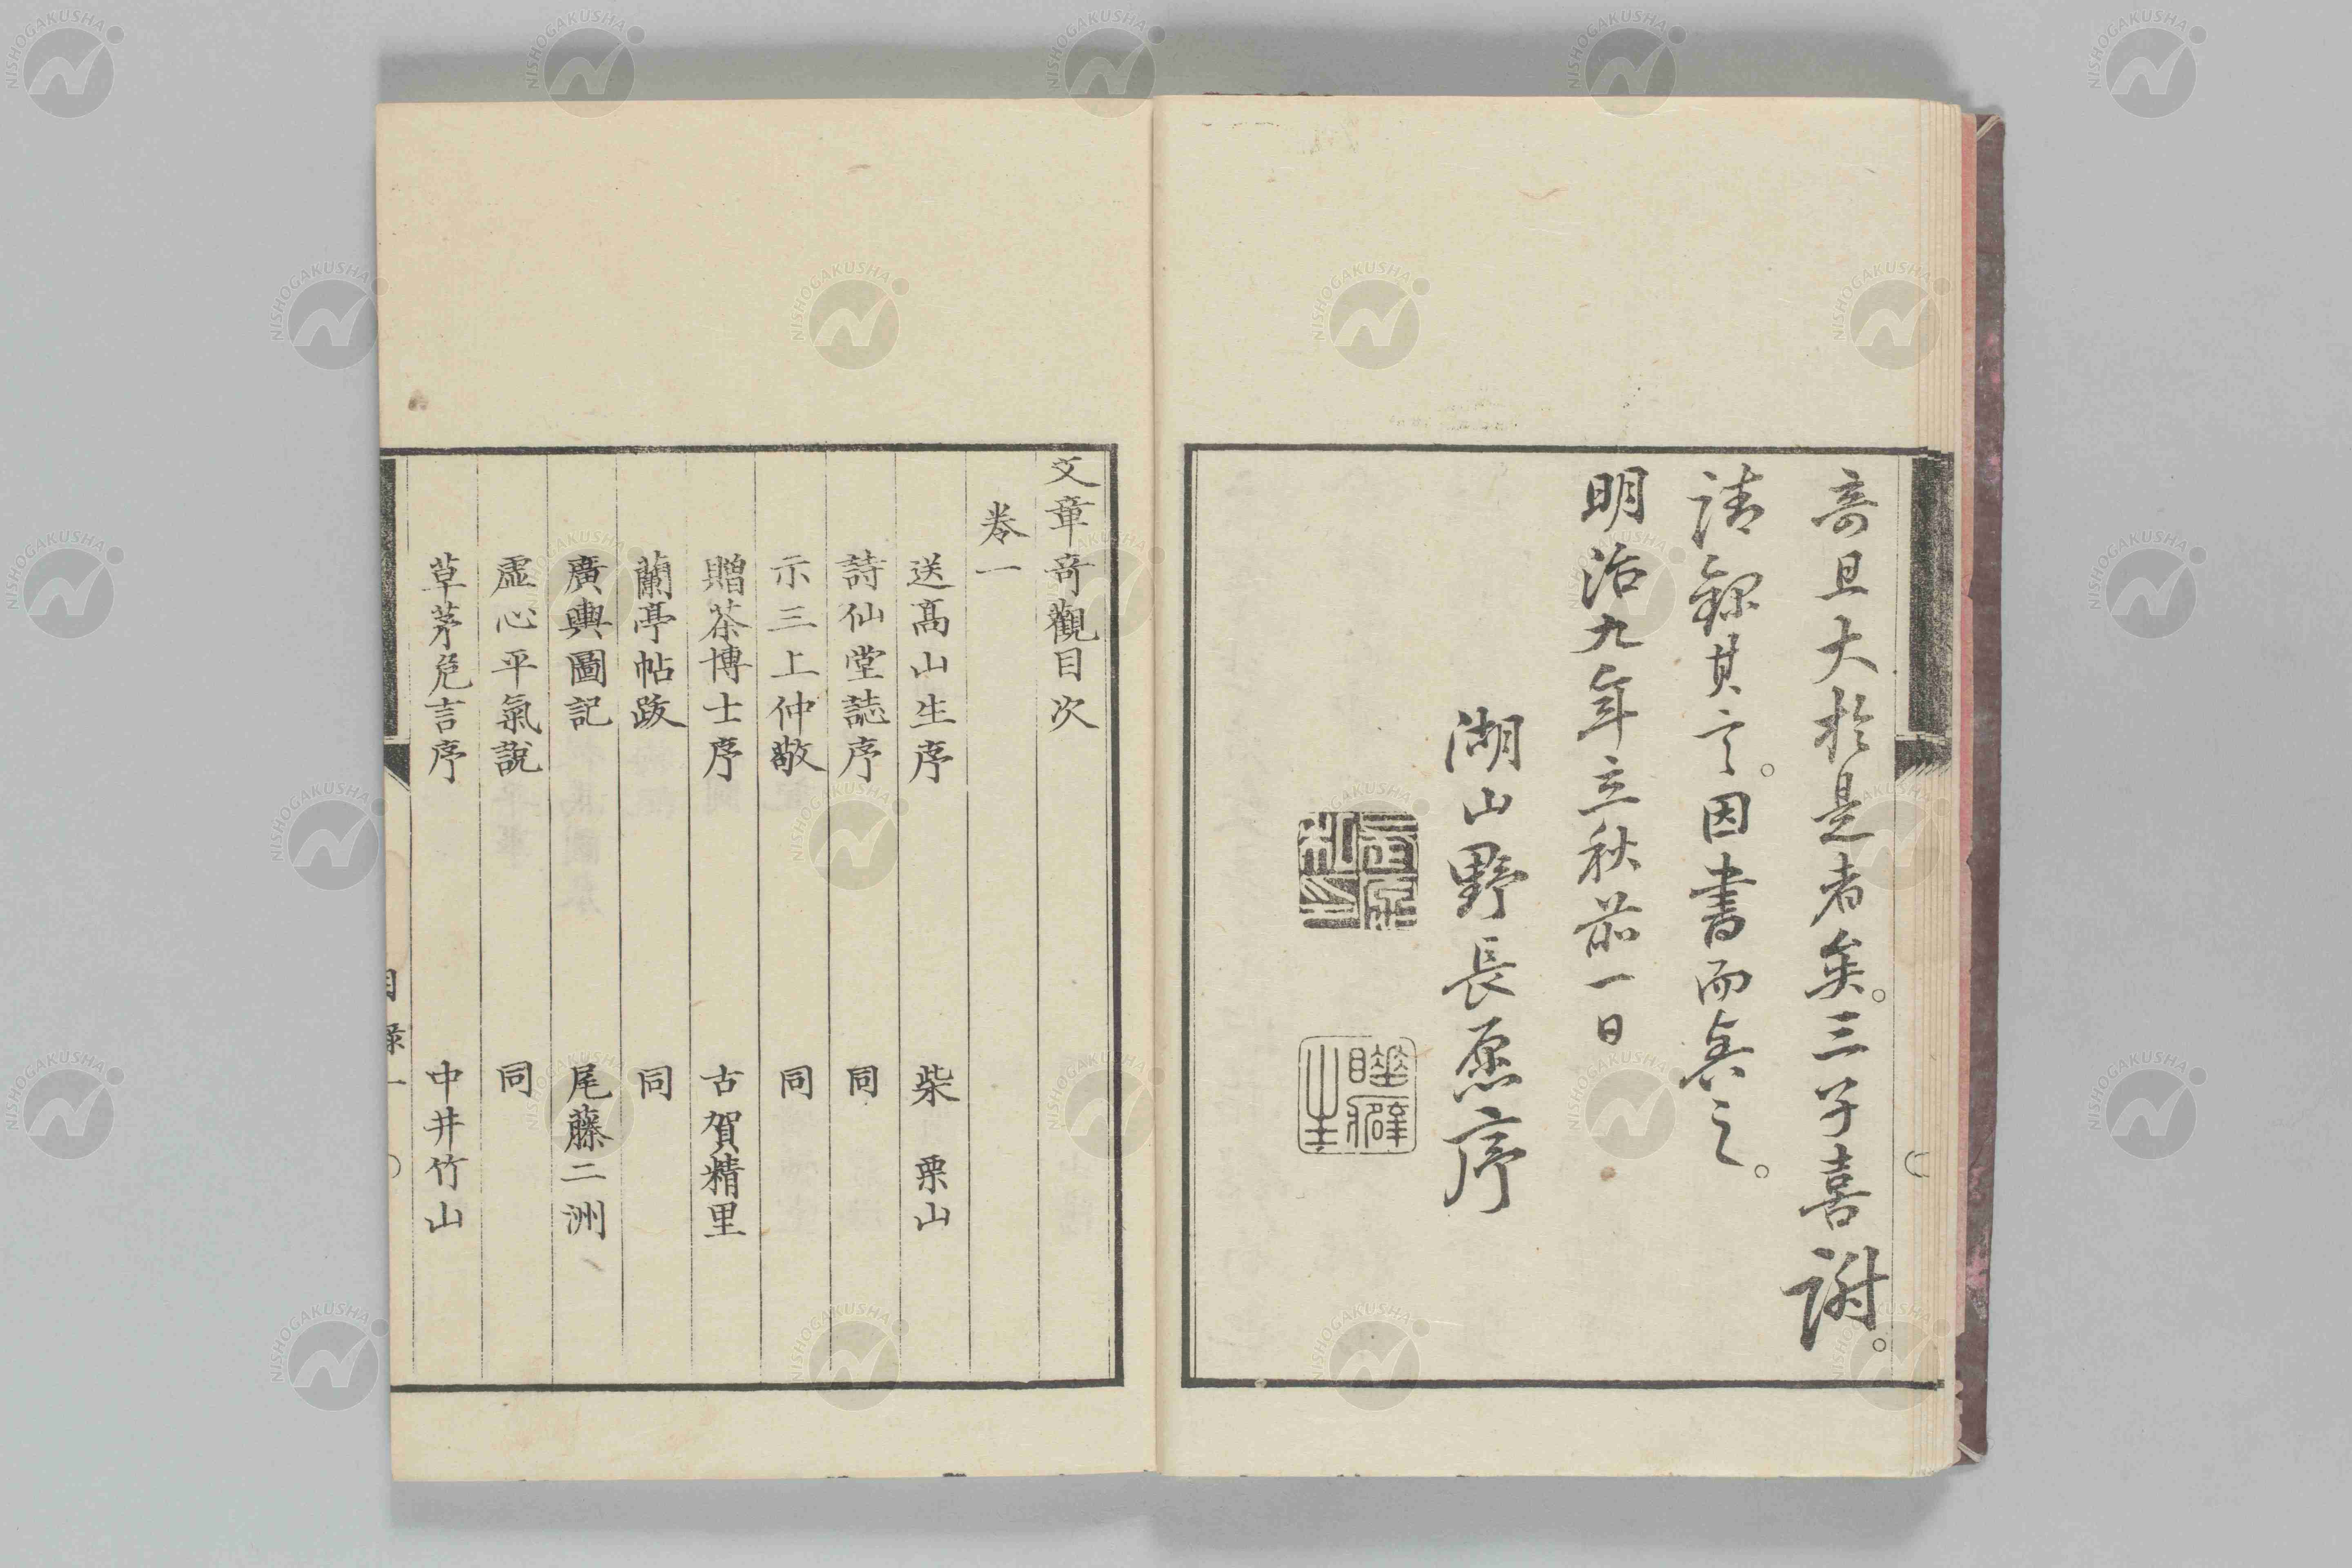 奇且大於是者矣。三子喜謝。
請錄其言。因書而與之。
明治九年立秋前一日
湖山野長愿序
文章奇觀目次
卷一
送高山生序 柴栗山
詩仙堂誌序 同
示三上仲敬 同
贈茶博士序 古賀精里
蘭亭帖跋 同
廣輿圖記 尾藤二洲
虛心平氣說 同
草茅危言序 中井竹山
目錄一
NISHOGAKUSHA